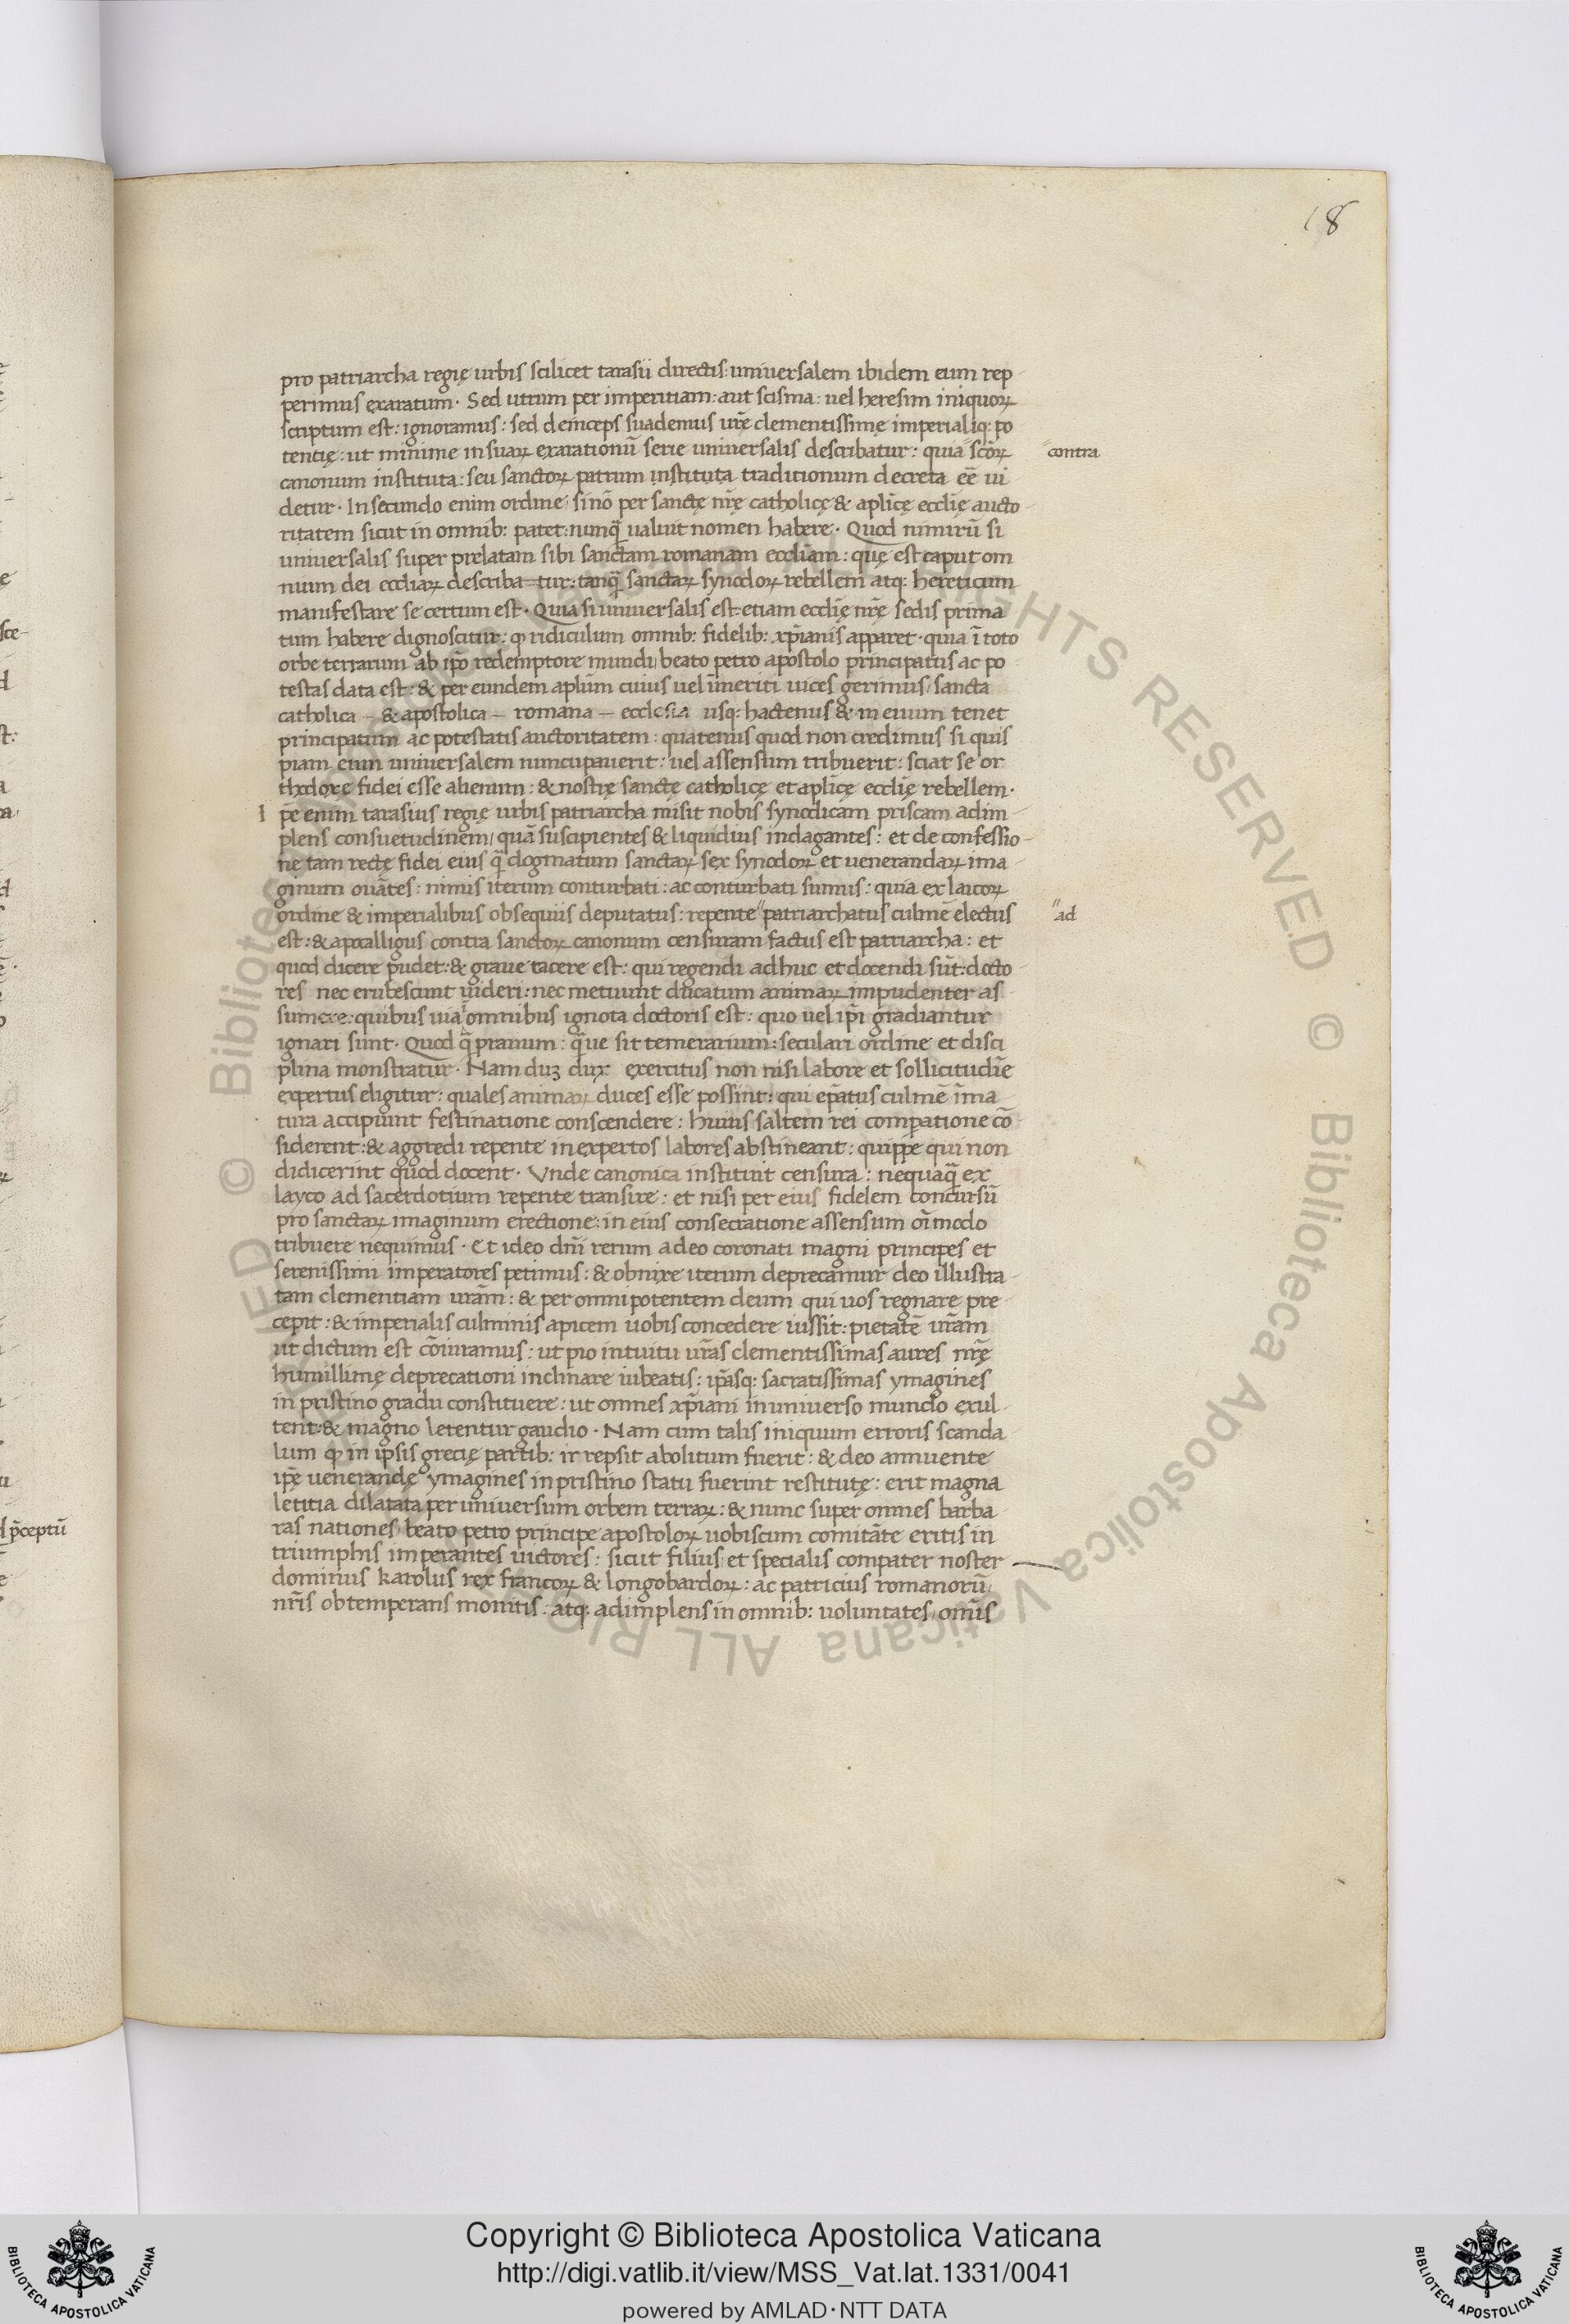 18
pro patriarcha regię urbis scilicet tarasii directis: uniuersalem ibidem eum rep
perimus exaratum. Sed utrum per imperitiam: aut scisma: uel heresim iniquoꝝ
scriptum est: ignoramus: sed deinceps suademus ur̄ę clementissimę imperialiq: po
tentię: ut minime in suaꝝ exarationū serie uniuersalis describatur: quia s̄coꝝ
contra
canonum instituta: seu sanctoꝝ patrum instituta traditionum decreta eē ui
detur. In secundo enim ordine, sinō per sanctę nr̄ę catholicę & apl̄icę eccl̄ię aucto
ritatem sicut in omnib: patet: nunq̄ ualuit nomen habere. Quod nimirū si
uniuersalis super prelatam sibi sanctam romanam eccl̄iam: quę est caput om
nium dei eccl̄iaꝝ describa-tur: tanq̄ sanctaꝝ synodoꝝ rebellem atq: hereticum
manifestare se certum est. Quia si uniuersalis est: etiam eccl̄ię nr̄ę sedis prima
tum habere dignoscitur: ꝙ ridiculum omnib: fidelib: xp̄ianis apparet. quia ī toto
orbe terrarum ab ip̄o redemptore mundi, beato petro apostolo principatus ac po
testas data est: & per eundem apl̄um cuius uel īmeriti uices gerimus, sancta
catholica - & apostolica - romana - ecclesia usq: hactenus & in euum tenet
principatum ac potestatis auctoritatem: quatenus quod non credimus si quis
piam eum uniuersalem nuncupauerit: uel assensum tribuerit: sciat se or
thodoxę fidei esse alienum: & nostrę sanctę catholicę et apl̄icę eccl̄ię rebellem.
I p̄e enim tarasius regię urbis patriarcha misit nobis synodicam priscam adim
plens consuetudinem, quā suscipientes & liquidius indagantes: et de confessio
ne tam rectę fidei eius q̄ dogmatum sanctaꝝ sex synodoꝝ et uenerandaꝝ ima
ginum ouātes: nimis iterum conturbati: ac conturbati sumus: quia ex laicoꝝ
ordine & imperialibus obsequiis deputatus: repente patriarchatus culmē electus
ad
est: & apocalligus contra sanctoꝝ canonum censuram factus est patriarcha: et
quod dicere pudet: & graue tacere est: qui regendi adhuc et docendi sūt: docto
res nec erubescunt uideri: nec metuunt ducatum animaꝝ impudenter as
sumere: quibus uia omnibus ignota doctoris est: quo uel ip̄i gradiantur
ignari sunt. Quod q̄ prauum: q̄ue sit temerarium: seculari ordine et disci
plina monstratur. Nam duꝫ dux exercitus non nisi labore et sollicitudīe
expertus eligitur: quales animaꝝ duces esse possint: qui ep̄atus culmē īma
tura accipiunt festinatione conscendere: huius saltem rei comparatione cō
siderent: & aggredi repente inexpertos labores abstineant: quippe qui non
didicerint quod docent. Vnde canonica instituit censura: nequaq̄ ex
layco ad sacerdotium repente transire: et nisi per eius fidelem concursū
pro sanctaꝝ imaginum erectione: in eius consecratione assensum oīmodo
tribuere nequimus. Et ideo dn̄i rerum a deo coronati magni principes et
serenissimi imperatores petimus: & obnixe iterum deprecamur deo illustra
tam clementiam ur̄am: & per omnipotentem deum qui uos regnare pre
cepit: & imperialis culminis apicem uobis concedere iussit: pietatē ur̄am
ut dictum est cōiuramus: ut pro intuitu ur̄as clementissimas aures nr̄ę
humillimę deprecationi inclinare iubeatis: ip̄asq: sacratissimas ymagines
in pristino gradu constituere: ut omnes xp̄iani in uniuerso mundo exul
tent: & magno letentur gaudio. Nam cum talis iniquum erroris scanda
lum ꝙ in ipsis grecię partib: irrepsit abolitum fuerit: & deo annuente
ip̄ę uenerandę ymagines in pristino statu fuerint restitutę: erit magna
letitia dilatata per uniuersum orbem terraꝝ: & nunc super omnes barba
ras nationes, beato petro principe apostoloꝝ uobiscum comitāte eritis in
triumphis imperantes uictores: sicut filius, et specialis compater noster
dominus karolus rex francoꝝ & longobardoꝝ: ac patricius romanorū,
nr̄is obtemperans monitis: atq: adimplens in omnib: uoluntates, omīs
p̄ceptū
© Biblioteca Apostolica Vaticana ALL RIGHTS RESERVED
Copyright © Biblioteca Apostolica Vaticana
http://digi.vatlib.it/view/MSS_Vat.lat.1331/0041
powered by AMLAD·NTT DATA
BIBLIOTECA APOSTOLICA VATICANA
BIBLIOTECA APOSTOLICA VATICANA